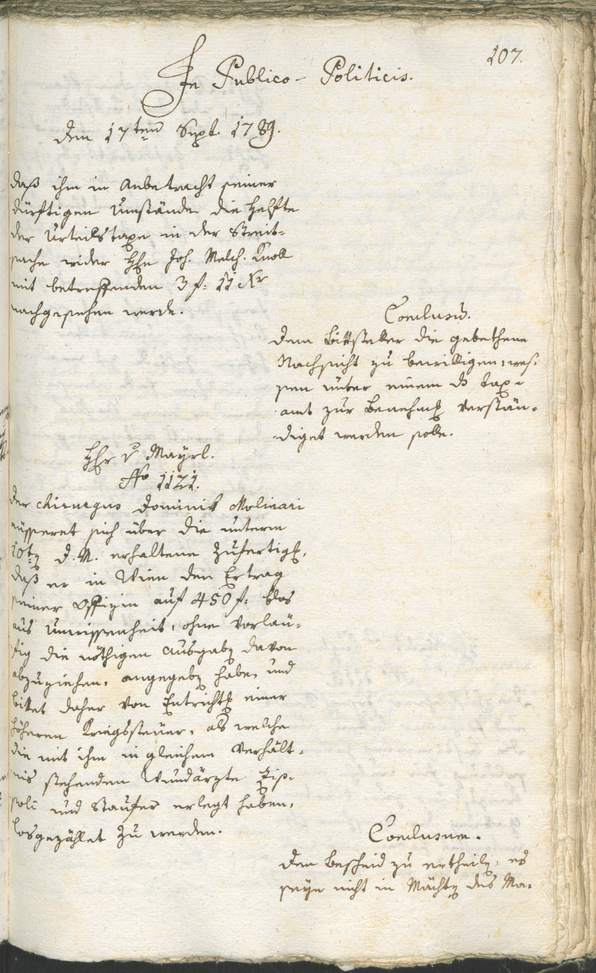 107.
In Publico-Politicis.
den 17ten Sept. 1789.
daß ihm in Anbetracht seiner
dürftigen Umstände die Helfte
der Urteilstaxe in der Streit-
sache wider Hhn Joh. Melch. Knoll
mit betreffenden 3 f: 11 Xr
nachgesehen werde.
Conclusum.
dem Bittsteller die gebethene
Nachsicht zu bewilligen, wes-
sen unter einem das Tax-
amt zur Benehmung verstän-
diget werden solle.
Hhr. v Mayrl.
No 1121.
der Chirurgus Dominik Molinari
äusseret sich über die unterm
10ten d. M. erhaltene Zufertigung,
daß er in Wien den Ertrag
seiner Offizin auf 450 f: blos
aus Unwissenheit, ohne vorläu-
fig die nöthigen Ausgaben davon
abzuziehen, angegeben habe, und
bittet daher von Entrichtung einer
höheren Kriegssteuer, als welche
die mit ihm in gleichem Verhält-
nis stehenden Wundärzte
und Staufer erlegt haben,
losgezählet zu werden.
Conclusum.
den Bescheid zu ertheilen: es
seye nicht in Mächten des Ma-